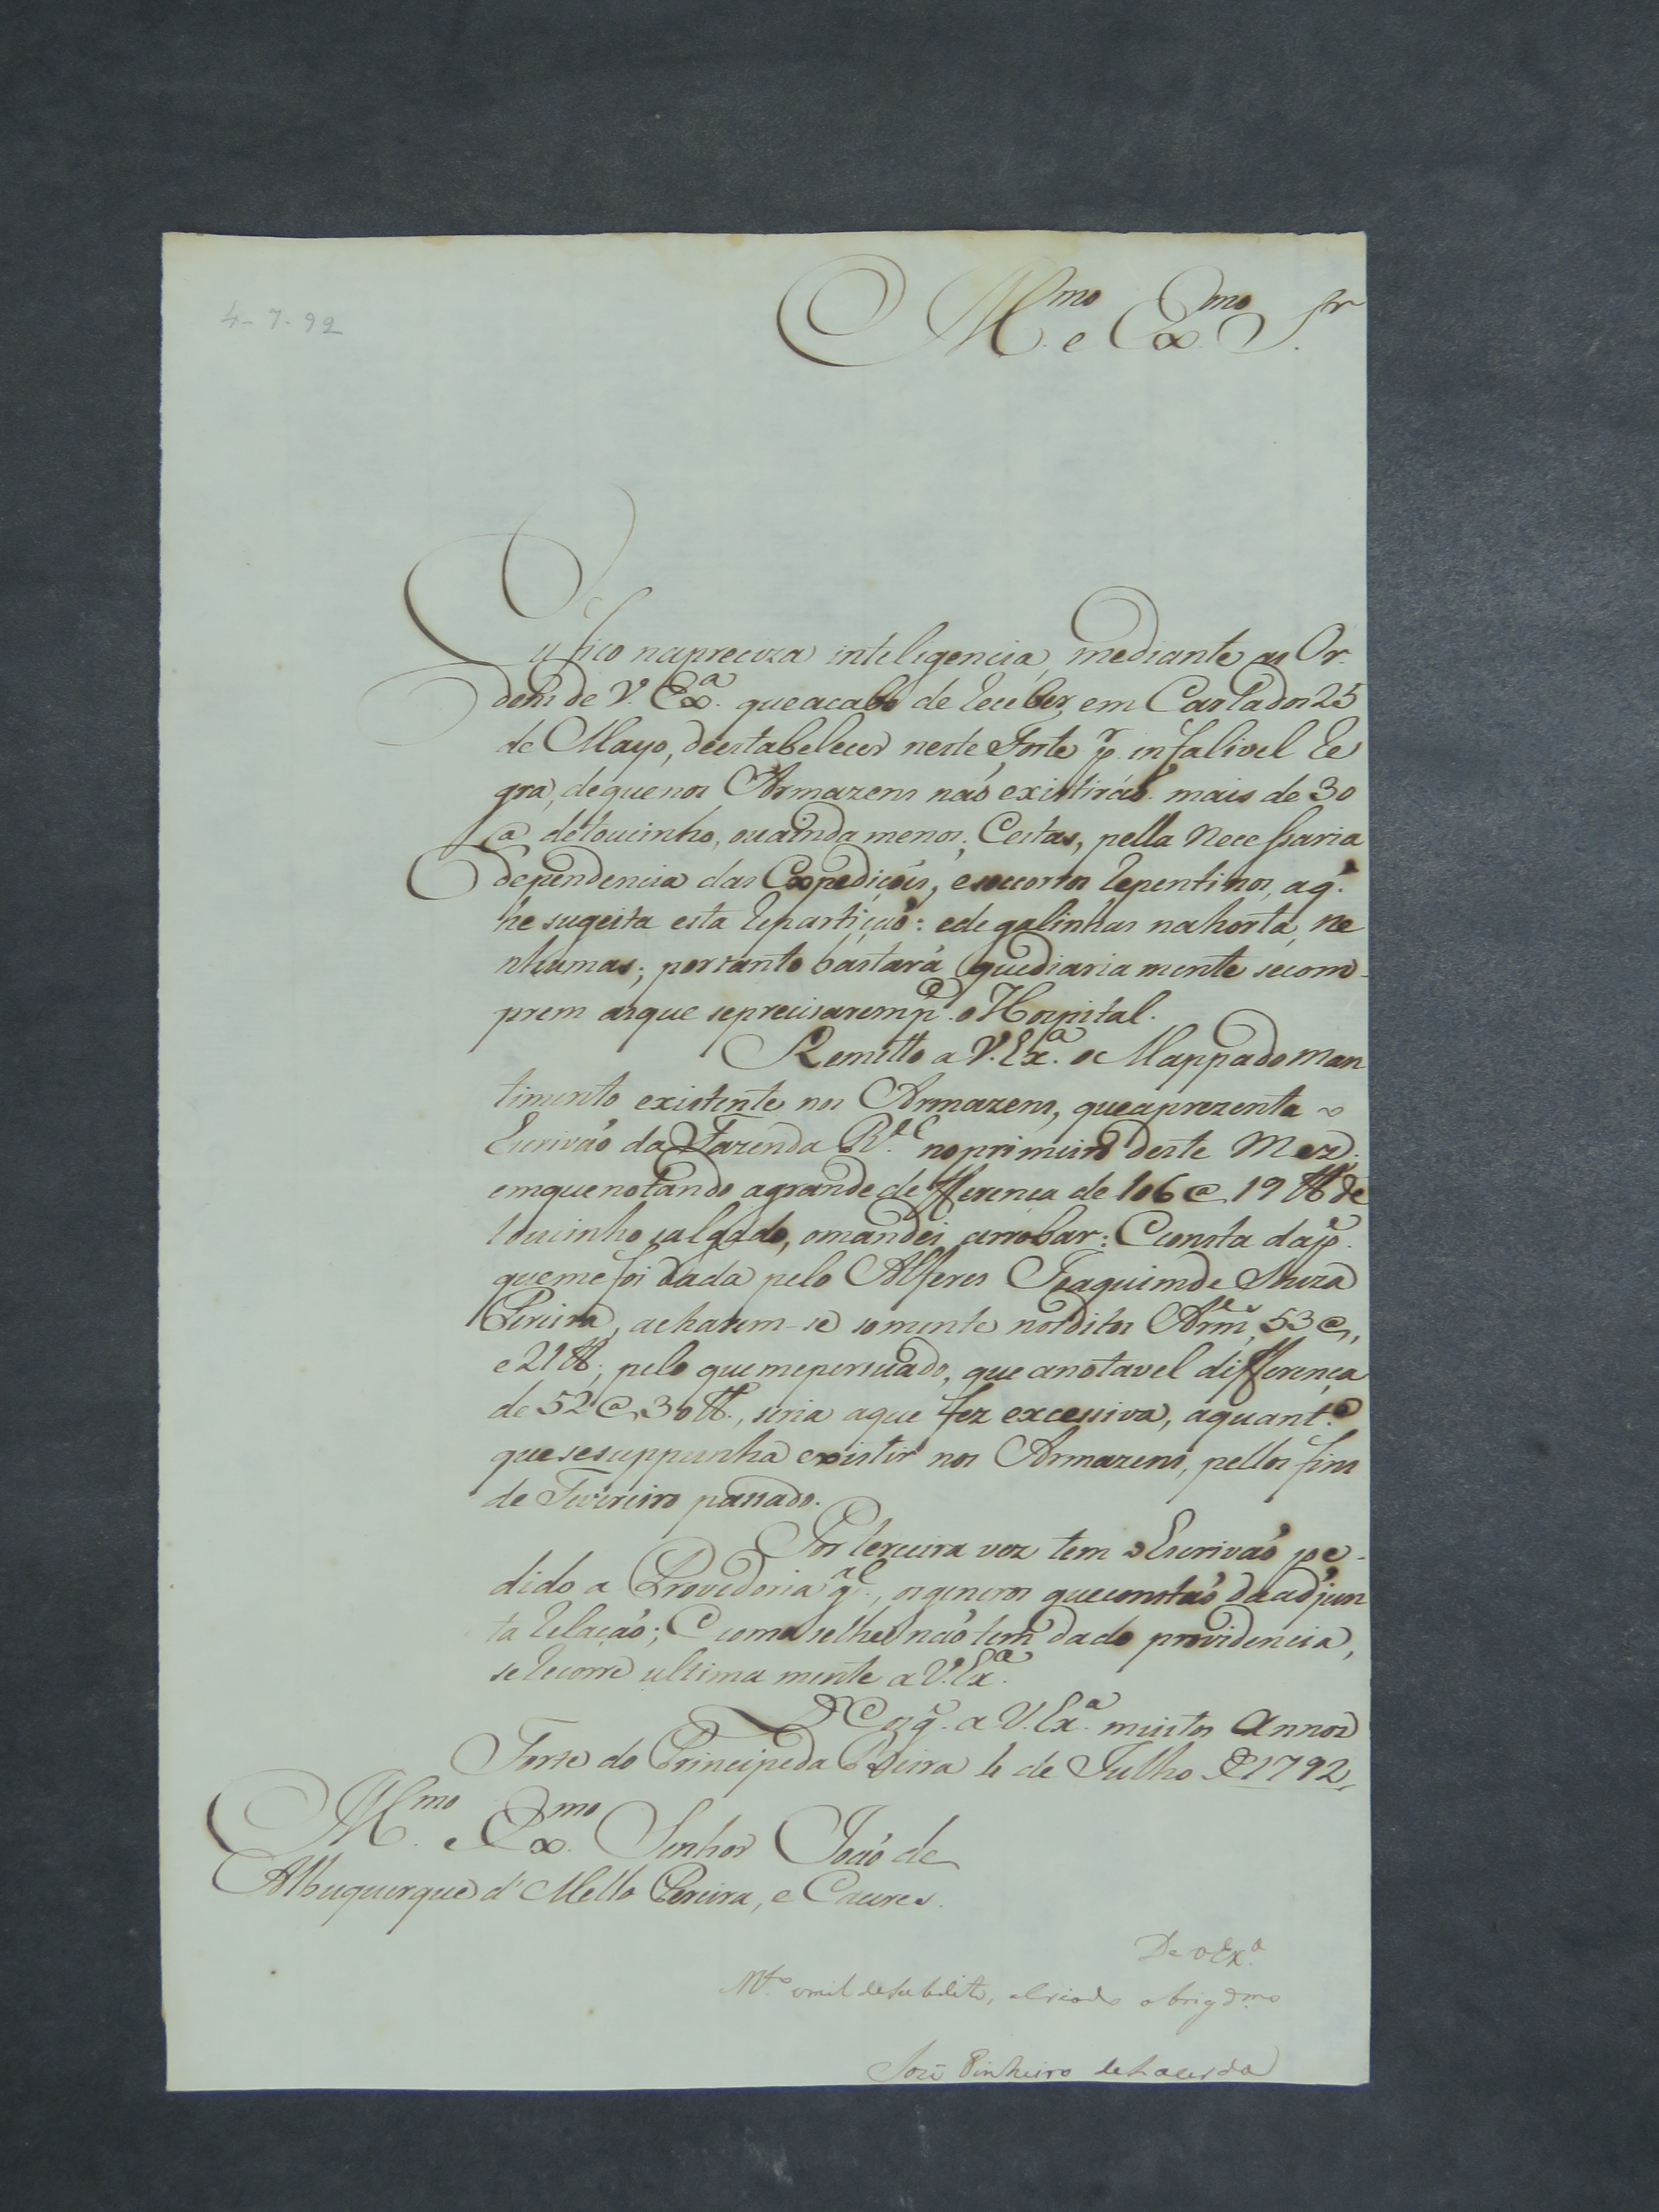 4-7-92
Ill.mo e Ex.mo S.r
Eu fico na preciza inteligencia, mediante as Or-
dens de V. Ex.a que acabo de receber, em Carta dos 25
de Mayo, de estabelecer neste Forte p.r infalivel re
gra, de que nos Armazens naó existiráõ mais de 30
@ de toucinho, ou ainda menos; Estas, pella Necessaria
dependencia das Expediçoẽs, e soccorros repentinos, a q.
he sugeita esta repartiçaõ: e de galinhas na horta, ne
nhumas; portanto bastará que diariamente se com-
prem as que se precisarem p.a o Hospital.
Remetto a V. Ex.a o Mappa do man
timento existente nos Armazens, que aprezenta o
Escrivaõ da Fazenda R.l no primeiro deste Mez;
em que notando a grande defferença de 106 @ 19 ℔ de
toucinho salgado, o mandei arrobar: E consta da p.e
que me foi dada pelo Alferes Joaquim de Souza
Pereira, acharem-se somente nos ditos Arm.s 53 @,
e 21 ℔; pelo que me persuado, que a notavel differença
de 52 @, 30 ℔., seria a que fez excessiva, a quant.e
que se suppunha existir nos Armazens, pellos fins
de Fevereiro passado.
Por terceira vez tem o Escrivaõ pe-
dido a Provedoria g.al, os generos que constaõ da adjun
ta relaçaõ; E como se lhe naõ tem dado providencia,
se recorre ultimamente a V. Ex.a
D.s g.e a V. Ex.a muitos Annos
Forte do Principe da Beira 4 de Julho de 1792,
Ill.mo e Ex.mo Senhor Joaõ de
Albuquerque d' Mello Pereira, e Caceres.
De V Ex.a
M.to omilde subdito, e Criado obrigd.mo
José Pinheiro de Lacerda